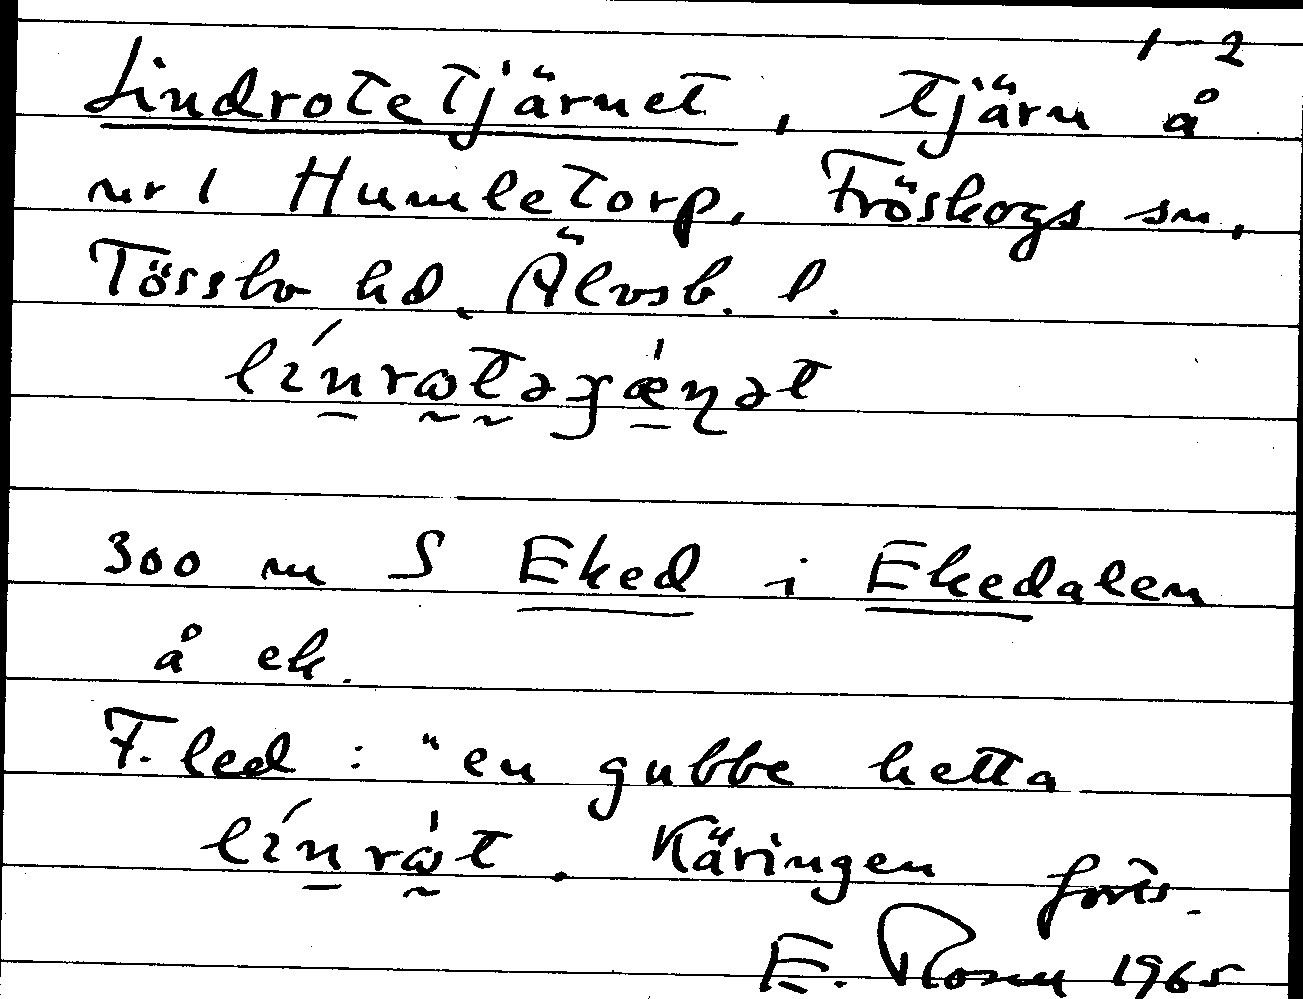 1-2
Lindrotetjärnet, tjärn å
nr 1 Humletorp, Fröskogs sn,
Tössbo hd, Älvsb. l.
300 m S Eked i Ekedalen
å ek.
F. led: "en gubbe hetta
Käringen forts.
E. 1965